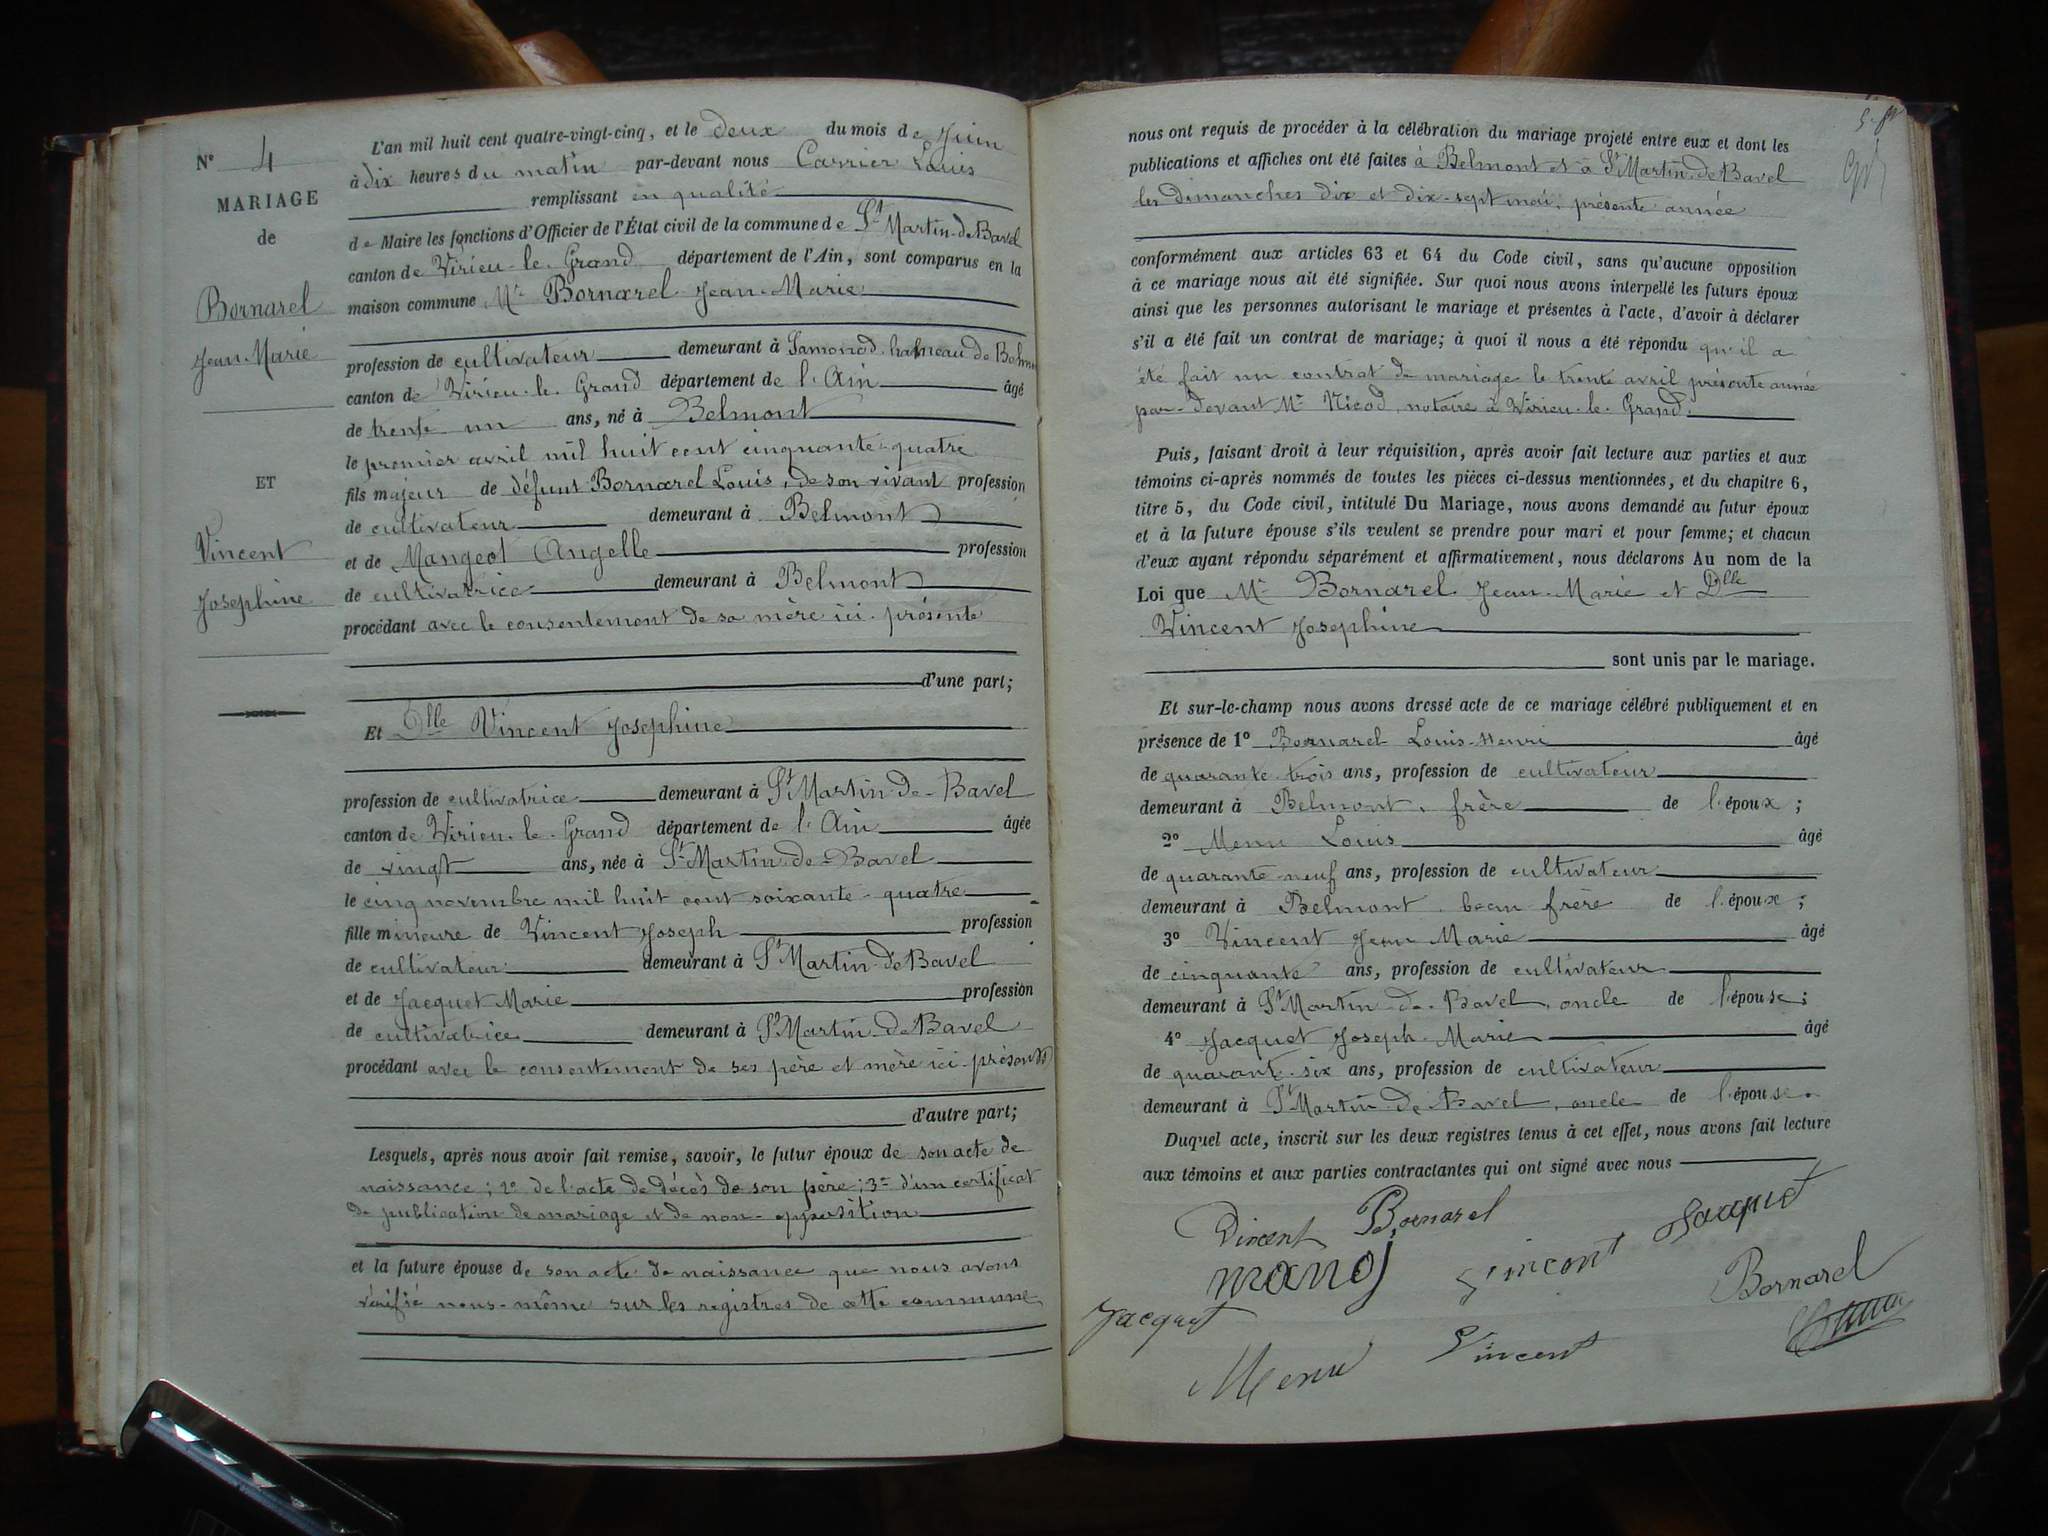 N° 4
MARIAGE
de
Bornarel
Jean-Marie
ET
Vincent
Josephine
L'an mil huit cent quatre-vingt-cinq, et le deux du mois de Juin
à dix heures du matin par-devant nous Carrier Louis
remplissant en qualité
de Maire les fonctions d'Officier de l'État civil de la commune de St Martin-de Bavel
canton de Virieu-le-Grand département de l'Ain, sont comparus en la
maison commune Mr Bornarel Jean-Marie
profession de cultivateur demeurant à Samonod hameau de Belmont
canton de Virieu-le-Grand département de l'Ain âgé
de trente un ans, né à Belmont
le premier avril mil huit cent cinquante-quatre
fils majeur de défunt Bornarel Louis, de son vivant profession
de cultivateur demeurant à Belmont
et de Mangeot Angelle profession
de cultivatrice demeurant à Belmont
procédant avec le consentement de sa mère ici présente
d'une part;
Et Dlle Vincent Josephine
profession de cultivatrice demeurant à St Martin-de-Bavel
canton de Virieu-le-Grand département de l'Ain âgée
de vingt ans, née à St Martin-de-Bavel
le cinq novembre mil huit cent soixante-quatre
fille mineure de Vincent Joseph profession
de cultivateur demeurant à St Martin-de Bavel
et de Jacquet Marie profession
de cultivatrice demeurant à St Martin-de Bavel
procédant avec le consentement de ses père et mère ici présents
d'autre part;
Lesquels, après nous avoir fait remise, savoir, le futur époux de son acte de
naissance; 2° de l'acte de décès de son père; 3° d'un certificat
de publication de mariage et de non-opposition
et la future épouse de son acte de naissance que nous avons
vérifié nous-même sur les registres de cette commune
nous ont requis de procéder à la célébration du mariage projeté entre eux et dont les
publications et affiches ont été faites à Belmont et à St Martin-de Bavel
les dimanches dix et dix-sept mai, présente année
conformément aux articles 63 et 64 du Code civil, sans qu'aucune opposition
à ce mariage nous ait été signifiée. Sur quoi nous avons interpellé les futurs époux
ainsi que les personnes autorisant le mariage et présentes à l'acte, d'avoir à déclarer
s'il a été fait un contrat de mariage; à quoi il nous a été répondu qu'il a
été fait un contrat de mariage le trente avril présente année
par-devant Me Nicod, notaire à Virieu-le-Grand.
Puis, faisant droit à leur réquisition, après avoir fait lecture aux parties et aux
témoins ci-après nommés de toutes les pièces ci-dessus mentionnées, et du chapitre 6,
titre 5, du Code civil, intitulé Du Mariage, nous avons demandé au futur époux
et à la future épouse s'ils veulent se prendre pour mari et pour femme; et chacun
d'eux ayant répondu séparément et affirmativement, nous déclarons Au nom de la
Loi que Mr Bornarel Jean-Marie et Dlle
Vincent Josephine
sont unis par le mariage.
Et sur-le-champ nous avons dressé acte de ce mariage célébré publiquement et en
présence de 1° Bornarel Louis-Henri âgé
de quarante-trois ans, profession de cultivateur
demeurant à Belmont, frère de l'époux;
2° Menu Louis âgé
de quarante-neuf ans, profession de cultivateur
demeurant à Belmont, beau frère de l'époux;
3° Vincent Jean Marie âgé
de cinquante ans, profession de cultivateur
demeurant à St Martin-de-Bavel, oncle de l'épouse;
4° Jacquet Joseph-Marie âgé
de quarante-six ans, profession de cultivateur
demeurant à St Martin-de Bavel, oncle de l'épouse.
Duquel acte, inscrit sur les deux registres tenus à cet effet, nous avons fait lecture
aux témoins et aux parties contractantes qui ont signé avec nous
Vincent Bornarel Jacquet
manoj Vincent Bornarel
Jacquet
Menu Vincent